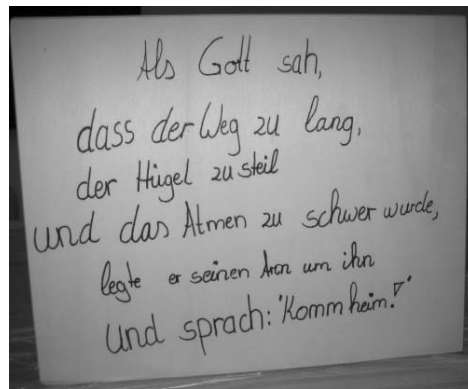 Als Gott sah,
dass der Weg zu lang,
der Hügel zu steil
und das Atmen zu schwer wurde,
legte er seinen Arm um ihn
und sprach: 'Komm heim!'